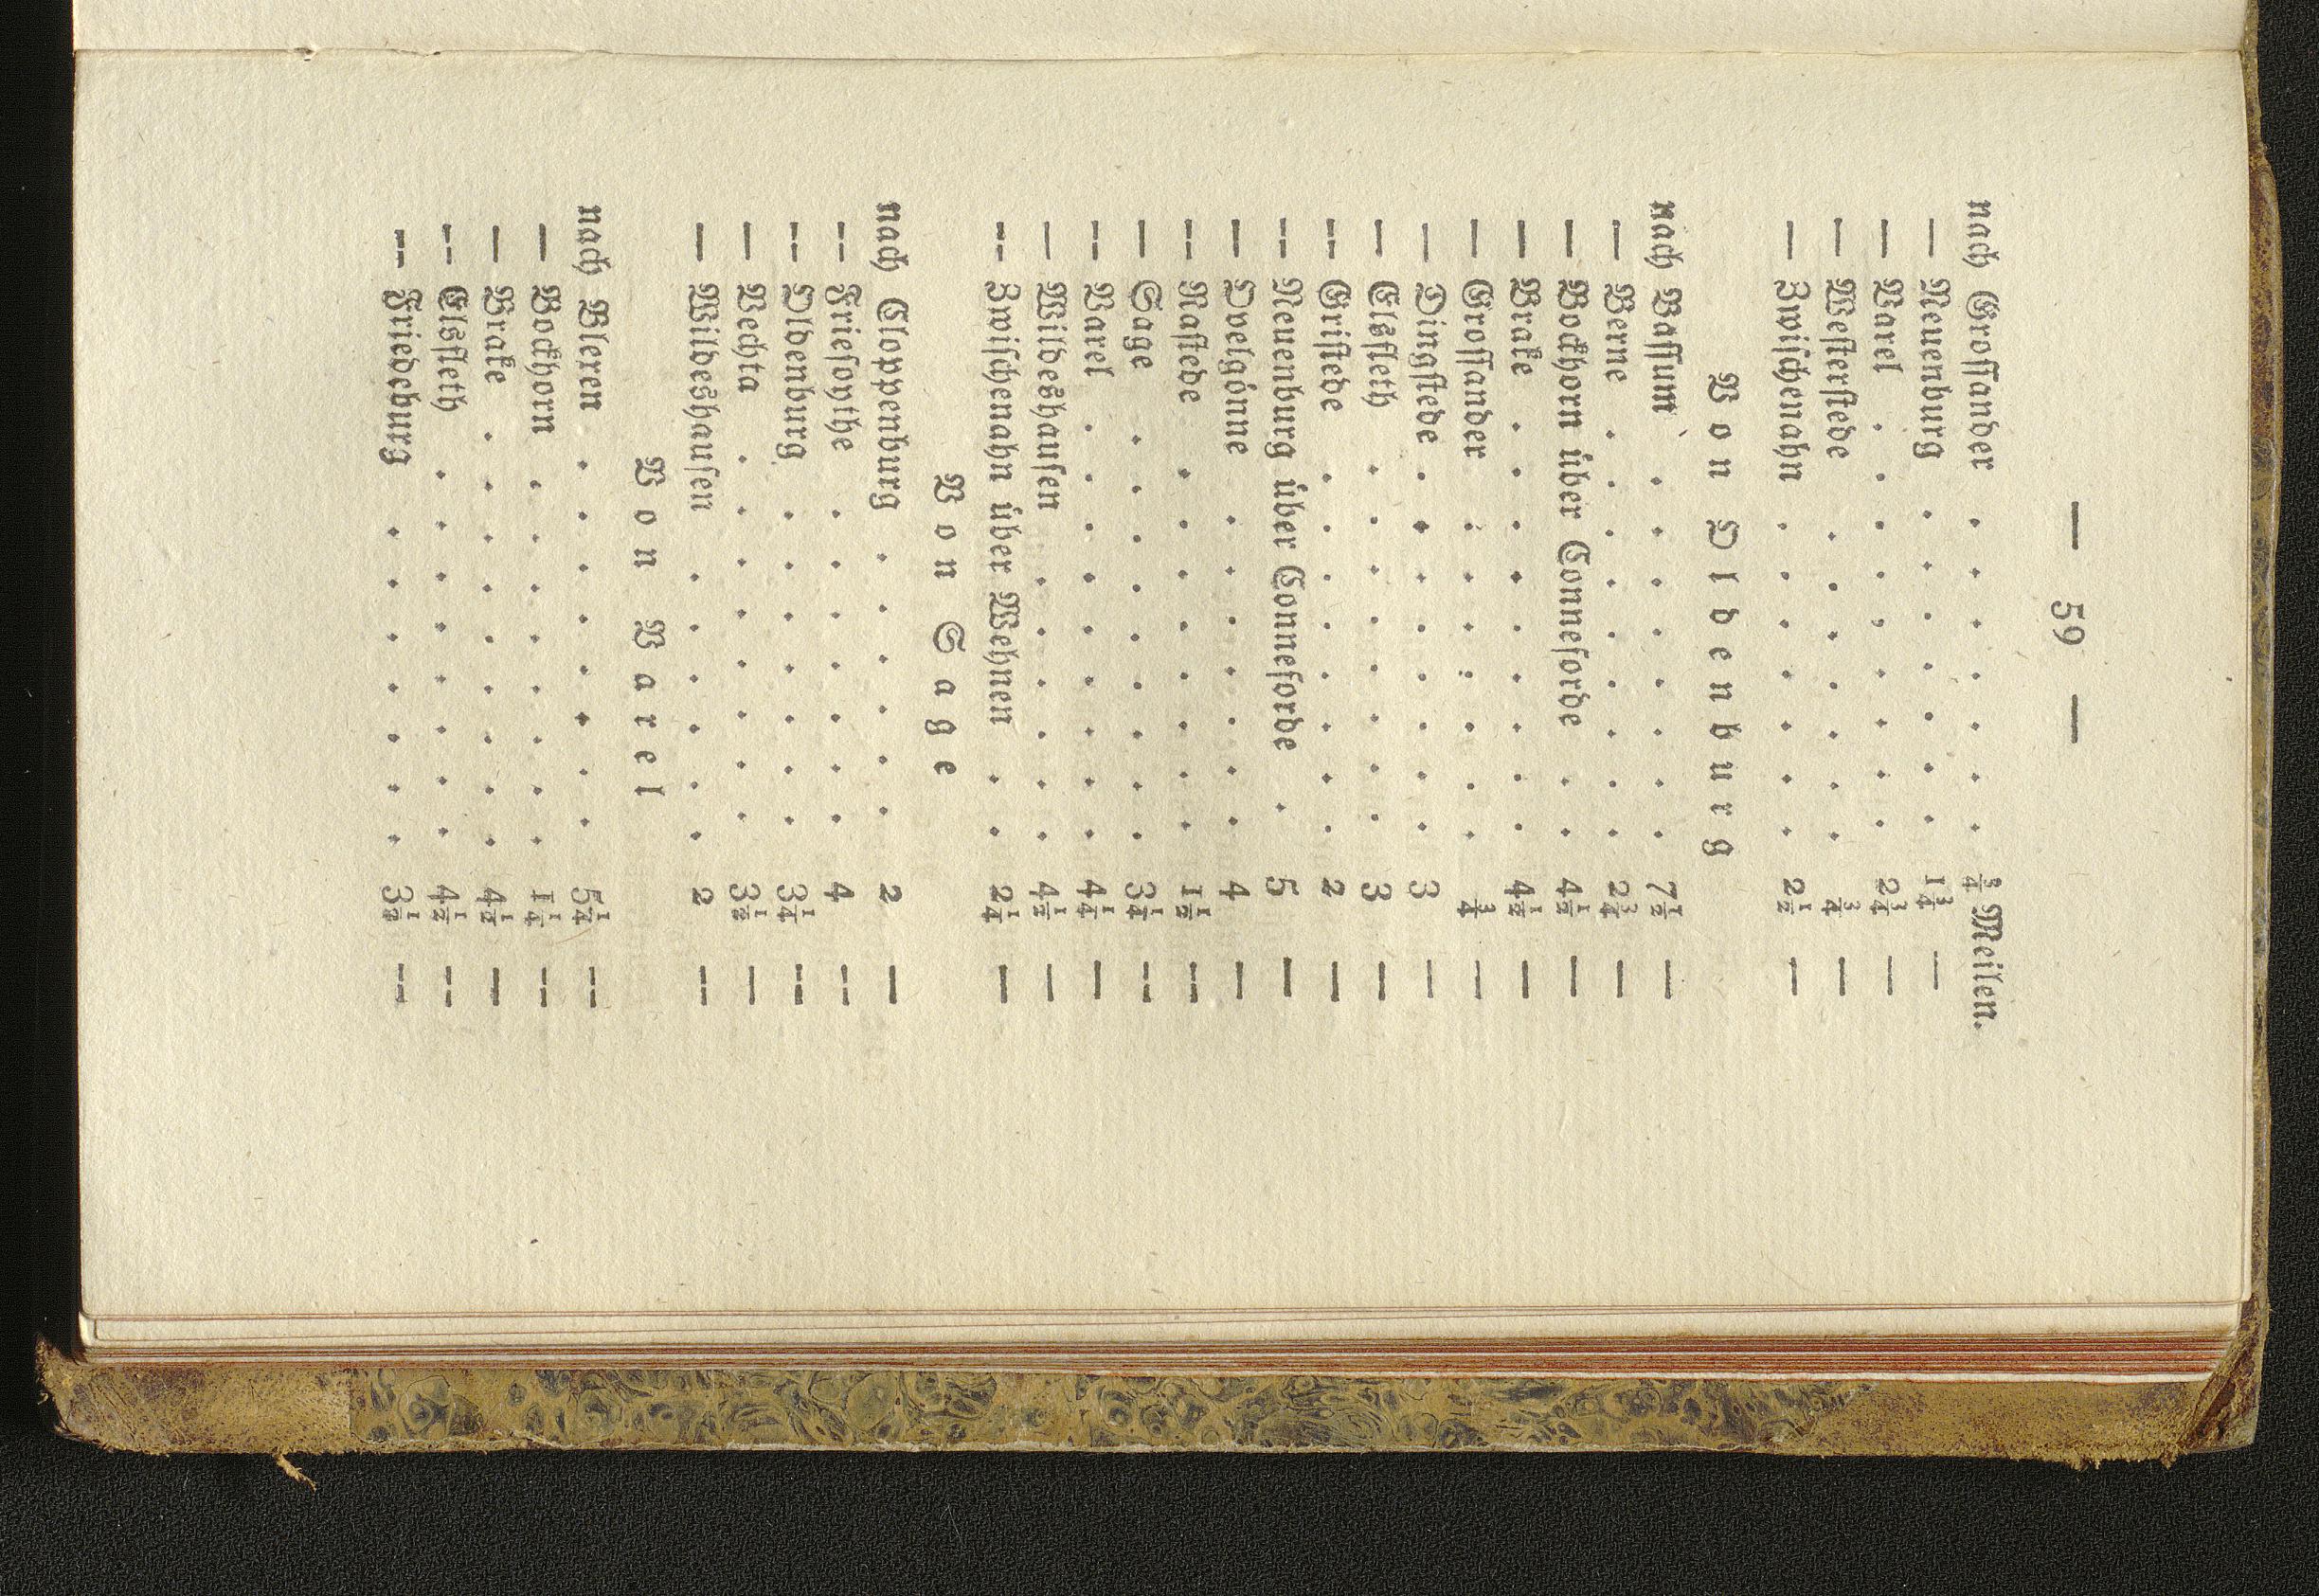 — 59 —
nach Grossander . . . . . . . ¾ Meilen.
— Neuenburg . . . . . . . 1¾ —
— Varel . . . . . . . . . 2¾ —
— Westerstede . . . . . . . ¾ —
— Zwischenahn . . . . . . . 2½ —
Von Oldenburg
nach Bassum . . . . . . . . 7½ —
— Berne . . . . . . . . . 2¾ —
— Bockhorn über Conneforde . . . 4½ —
— Brake . . . . . . . . . 4½ —
— Grossander . . . . . . . ¾ —
— Dingstede . . . . . . . . 3 —
— Elsfleth . . . . . . . . 3 —
— Gristede . . . . . . . . 2 —
— Neuenburg über Conneforde . . 5 —
— Ovelgönne . . . . . . . 4 —
— Rastede . . . . . . . . 1½ —
— Sage . . . . . . . . . 3¼ —
— Varel . . . . . . . . . 4¼ —
— Wildeshausen . . . . . . 4½ —
— Zwischenahn über Wehnen . . 2¼ —
Von Sage
nach Cloppenburg . . . . . . 2 —
— Friesoythe . . . . . . . 4 —
— Oldenburg . . . . . . . 3¼ —
— Vechta . . . . . . . . 3½ —
— Wildeshausen . . . . . . 2 —
Von Varel
nach Blexen . . . . . . . . 5¼ —
— Bockhorn . . . . . . . . 1¼ —
— Brake . . . . . . . . . 4½ —
— Elsfleth . . . . . . . . 4½ —
— Friedeburg . . . . . . . 3½ —